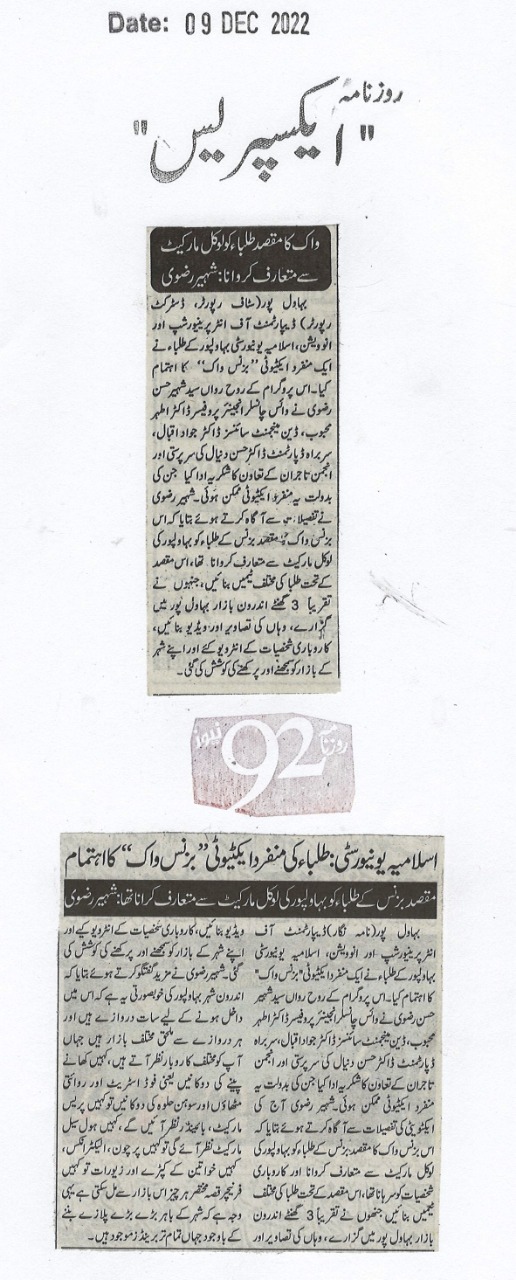 Date: 09 DEC 2022
روزنامہ
"ایکسپریس"
واک کا مقصد طلباء کو لوکل مارکیٹ
سے متعارف کروانا: شہیر رضوی
بہاول پور (سٹاف رپورٹر، ڈسٹرکٹ
رپورٹر) ڈیپارٹمنٹ آف انٹرپرینیورشپ اور
انوویشن، اسلامیہ یونیورسٹی بہاولپور کے طلباء نے
ایک منفرد ایکٹیوٹی ”بزنس واک“ کا اہتمام
کیا۔ اس پروگرام کے روح رواں سید شہیر حسن
رضوی نے وائس چانسلر انجینئر پروفیسر ڈاکٹر اطہر
محبوب، ڈین مینجمنٹ سائنسز ڈاکٹر جواد اقبال،
سربراہ ڈیپارٹمنٹ ڈاکٹر حسن دنیال کی سرپرستی اور
انجمن تاجران کے تعاون کا شکریہ ادا کیا جن کی
بدولت یہ منفرد ایکٹیوٹی ممکن ہوئی۔ شہیر رضوی
نے تفصیلات سے آگاہ کرتے ہوئے بتایا کہ اس
بزنس واک کا مقصد بزنس کے طلباء کو بہاولپور کی
لوکل مارکیٹ سے متعارف کروانا تھا، اس مقصد
کے تحت طلبا کی مختلف ٹیمیں بنائیں، جنہوں نے
تقریباً 3 گھنٹے اندرون بازار بہاول پور میں
گزارے، وہاں کی تصاویر اور ویڈیو بنائیں،
کاروباری شخصیات کے انٹرویو کئے اور اپنے شہر
کے بازار کو سمجھنے اور پرکھنے کی کوشش کی گئی۔
روزنامہ 92 نیوز
اسلامیہ یونیورسٹی: طلباء کی منفرد ایکٹیوٹی ”بزنس واک“ کا اہتمام
مقصد بزنس کے طلباء کو بہاولپور کی لوکل مارکیٹ سے متعارف کرانا تھا: شہیر رضوی
بہاول پور (نامہ نگار) ڈیپارٹمنٹ آف
انٹرپرینیورشپ اور انوویشن، اسلامیہ یونیورسٹی
بہاولپور کے طلباء نے ایک منفرد ایکٹیوٹی ”بزنس واک“
کا اہتمام کیا۔ اس پروگرام کے روح رواں سید شہیر
حسن رضوی نے وائس چانسلر انجینئر پروفیسر ڈاکٹر اطہر
محبوب، ڈین مینجمنٹ سائنسز ڈاکٹر جواد اقبال، سربراہ
ڈیپارٹمنٹ ڈاکٹر حسن دنیال کی سرپرستی اور انجمن
تاجران کے تعاون کا شکریہ ادا کیا جن کی بدولت یہ
منفرد ایکٹیوٹی ممکن ہوئی۔ شہیر رضوی آج کی
ایکٹیویٹی کی تفصیلات سے آگاہ کرتے ہوئے بتایا کہ
اس بزنس واک کا مقصد بزنس کے طلباء کو بہاولپور کی
لوکل مارکیٹ سے متعارف کروانا اور کاروباری
شخصیات کو سرہانا تھا، اس مقصد کے تحت طلبا کی مختلف
ٹیمیں بنائیں جنھوں نے تقریباً 3 گھنٹے اندرون
بازار بہاول پور میں گزارے، وہاں کی تصاویر اور
ویڈیو بنائیں، کاروباری شخصیات کے انٹرویو کیے اور
اپنے شہر کے بازار کو سمجھنے اور پرکھنے کی کوشش کی
گئی۔ شہیر رضوی نے مزید گفتگو کرتے ہوئے بتایا کہ
اندرون شہر بہاولپور کی خوبصورتی یہ ہے کہ اس میں
داخل ہونے کے لیے سات دروازے ہیں اور
ہر دروازے سے ملحق مختلف بازار ہیں جہاں
آپ کو مختلف کاروبار نظر آتے ہیں، کہیں کھانے
پینے کی دوکانیں یعنی فوڈ اسٹریٹ اور روائتی
مٹھاؤں اور سوہن حلوہ کی دوکانیں تو کہیں پریس
مارکیٹ، بائینڈر نظر آئیں گے، کہیں ہول سیل
مارکیٹ نظر آئے گی تو کہیں پرچون، الیکٹرانکس،
کہیں خواتین کے کپڑے اور زیورات تو کہیں
فرنیچر قصہ مختصر ہر چیز اس بازار سے مل سکتی ہے یہی
وجہ ہے کہ شہر کے باہر بڑے بڑے پلازے بننے
کے باوجود جہاں تمام تر برینڈز موجود ہیں۔